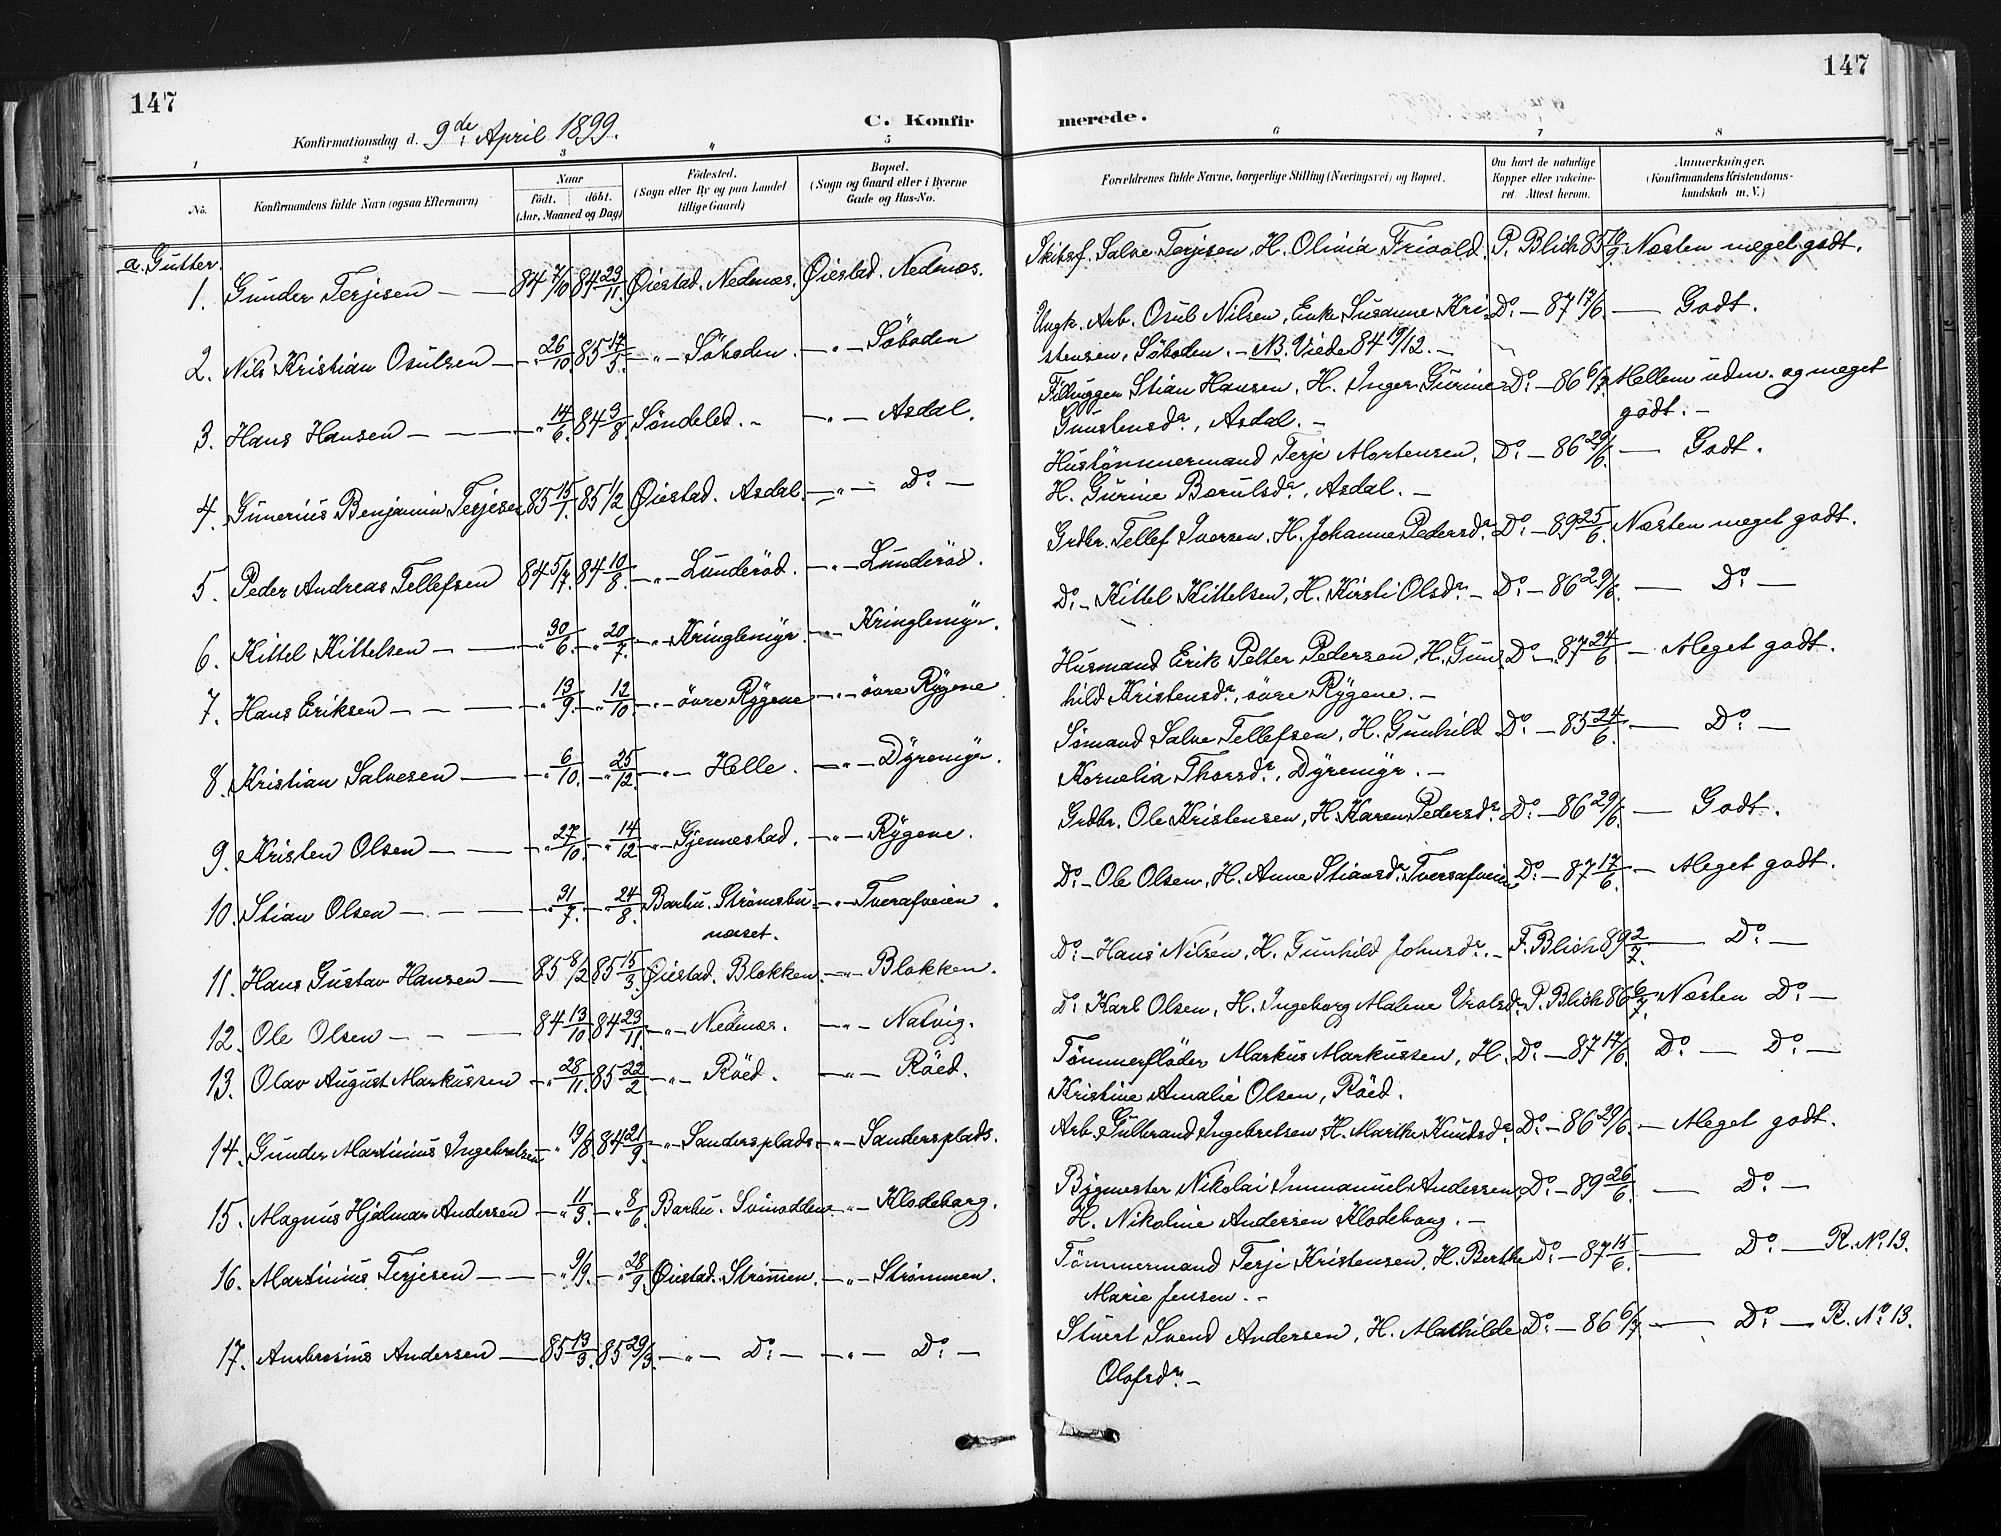 147
147
Konfirmationsdag d. 9de April 1899.
C. Konfirmerede.
1 2 3 4 5 6 7 8
No.
Konfirmandens fulde Navn (ogsaa Efternavn)
Naar
født. døbt.
(Aar, Maaned og Dag)
Fødested.
(Sogn eller By og paa Landet
tillige Gaard)
Bopæl.
(Sogn og Gaard eller i Byerne
Gade og Hus-No.
Forældrenes fulde Navne, borgerlige Stilling (Næringsvei) og Bopæl.
Om havt de naturlige
Kopper eller vakcine-
ret. Attest herom.
Anmærkninger.
(Konfirmandens Kristendoms-
kundskab m. V.)
a. Gutter.
1. Gunder Terjesen — — 84 7/10 84 23/11 Øiestad. Nedenæs. Øiestad. Nedenæs. Skibsf. Salve Terjesen, H. Olivia Trivold P. Blich 85 Næsten meget godt.
2. Nils Kristian Osulsen — „ 26/10 85 14/3 — „ — Söboden. — „ — Söboden Ungk. Arb. Osul Nilsen, Enke Susanne Kri- Do. — 87 17/6. — Godt.
stensen, Söboden. — NB. Viede 84 19/12. —
3. Hans Hansen — — „ 14/6. 84 3/8. Søndeled. — — „ — Asdal. Stian Hansen, H. Inger Gurine Do. — 86 6/7. Mellem udm. og meget
Gunstensdr., Asdal. — godt. —
4. Gunerius Benjamin Terjesen 85 15/1. 85 1/2 Øiestad. Asdal. — „ — Do. — Hustömmermand Terje Mortensen, Do. — 86 29/6. — Godt.
H. Gurine Bærulsdr., Asdal. —
5. Peder Andreas Tellefsen 84 5/7. 84 10/8. — „ — Lunderöd. — „ — Lunderöd. Grdbr. Tellef Iversen, H. Johanne Pedersdr. Do. — 89 25/6. Næsten meget godt.
6. Kittel Kittelsen — — „ 30/6. — „ 20/7. — „ — Kringlemyr. — „ — Kringlemyr. Do. — Kittel Kittelsen, H. Kirsti Olsdr. — Do. — 86 29/6. — Do. —
7. Hans Eriksen — — — „ 13/9. — „ 12/10. — „ — övre Rygene — „ — övre Rygene Husmand Erik Petter Pedersen, H. Gun- Do. — 87 24/6 — Meget godt.
hild Kristensdr., övre Rygene. —
8. Kristian Salvesen — „ 6/10. — „ 25/12. — „ — Helle. — „ — Dyremyr. Sømand Salve Tellefsen, H. Gunhild Do. — 85 24/6. — Do. —
Kornelia Thorsdr., Dyremyr. —
9. Kristen Olsen — — „ 27/10. — „ 14/12. — „ — Gjennestad. — „ — Rygene. Grdbr. Ole Kristensen, H. Karen Pedersdr. Do. — 86 29/6. — Godt.
10. Stian Olsen — — — „ 31/7. — „ 24/8. Barbu. Strömsbu- — „ — Tverafveien. Do. — Ole Olsen, H. Anne Stiansdr. Tverafveien Do. — 87 17/6. — Meget godt.
næset.
11. Hans Gustav Hansen — 85 8/2. 85 15/3. Øiestad. Blokken. — „ — Blokken. Do. — Hans Nilsen, H. Gunhild Johnsdr. — F. Blich 89 2/7. — Do. —
12. Ole Olsen — — — 84 13/10. 84 23/11. — „ — Nedenæs. — „ — Natvig. Do. Karl Olsen, H. Ingeborg Malene Vrolsdr. P. Blich 86 6/7. Næsten Do. —
13. Olav August Markussen — „ 28/11. 85 22/2. — „ — Röed. — „ — Röed. Tømmerfløder Markus Markussen, H. Do. — 87 17/6. Do. — Do. —
Kristine Amalie Olsen, Röed.
14. Gunder Martinius Ingebretsen „ 19/8. 84 21/9. — „ — Sandersplads. — „ — Sandersplads. Arb. Gulbrand Ingebretsen H. Marthe Knudsdr. Do. — 86 29/6. — Meget godt.
15. Magnus Hjalmar Andersen — „ 11/3. — „ 8/6. Barbu. Svinodden. — „ — Klodeborg. Bygmester Nikolai Immanuel Andersen, Do. — 89 26/6. — Do. —
H. Nikoline Andersen Klodeborg. —
16. Martinius Terjesen — — „ 9/9. — „ 28/9. Øiestad. Strömmen. — „ — Strömmen. Tömmermand Terje Kristensen, H. Berthe Do. — 87 15/6. — Do. — R. No. 13.
Marie Jensen. —
17. Ambrosius Andersen — 85 13/3. 85 29/3. — „ — Do. — — „ — Do. — Stuert Svend Andersen, H. Mathilde Do. — 86 6/7 — Do. — R. No. 13.
Olofsdr. —